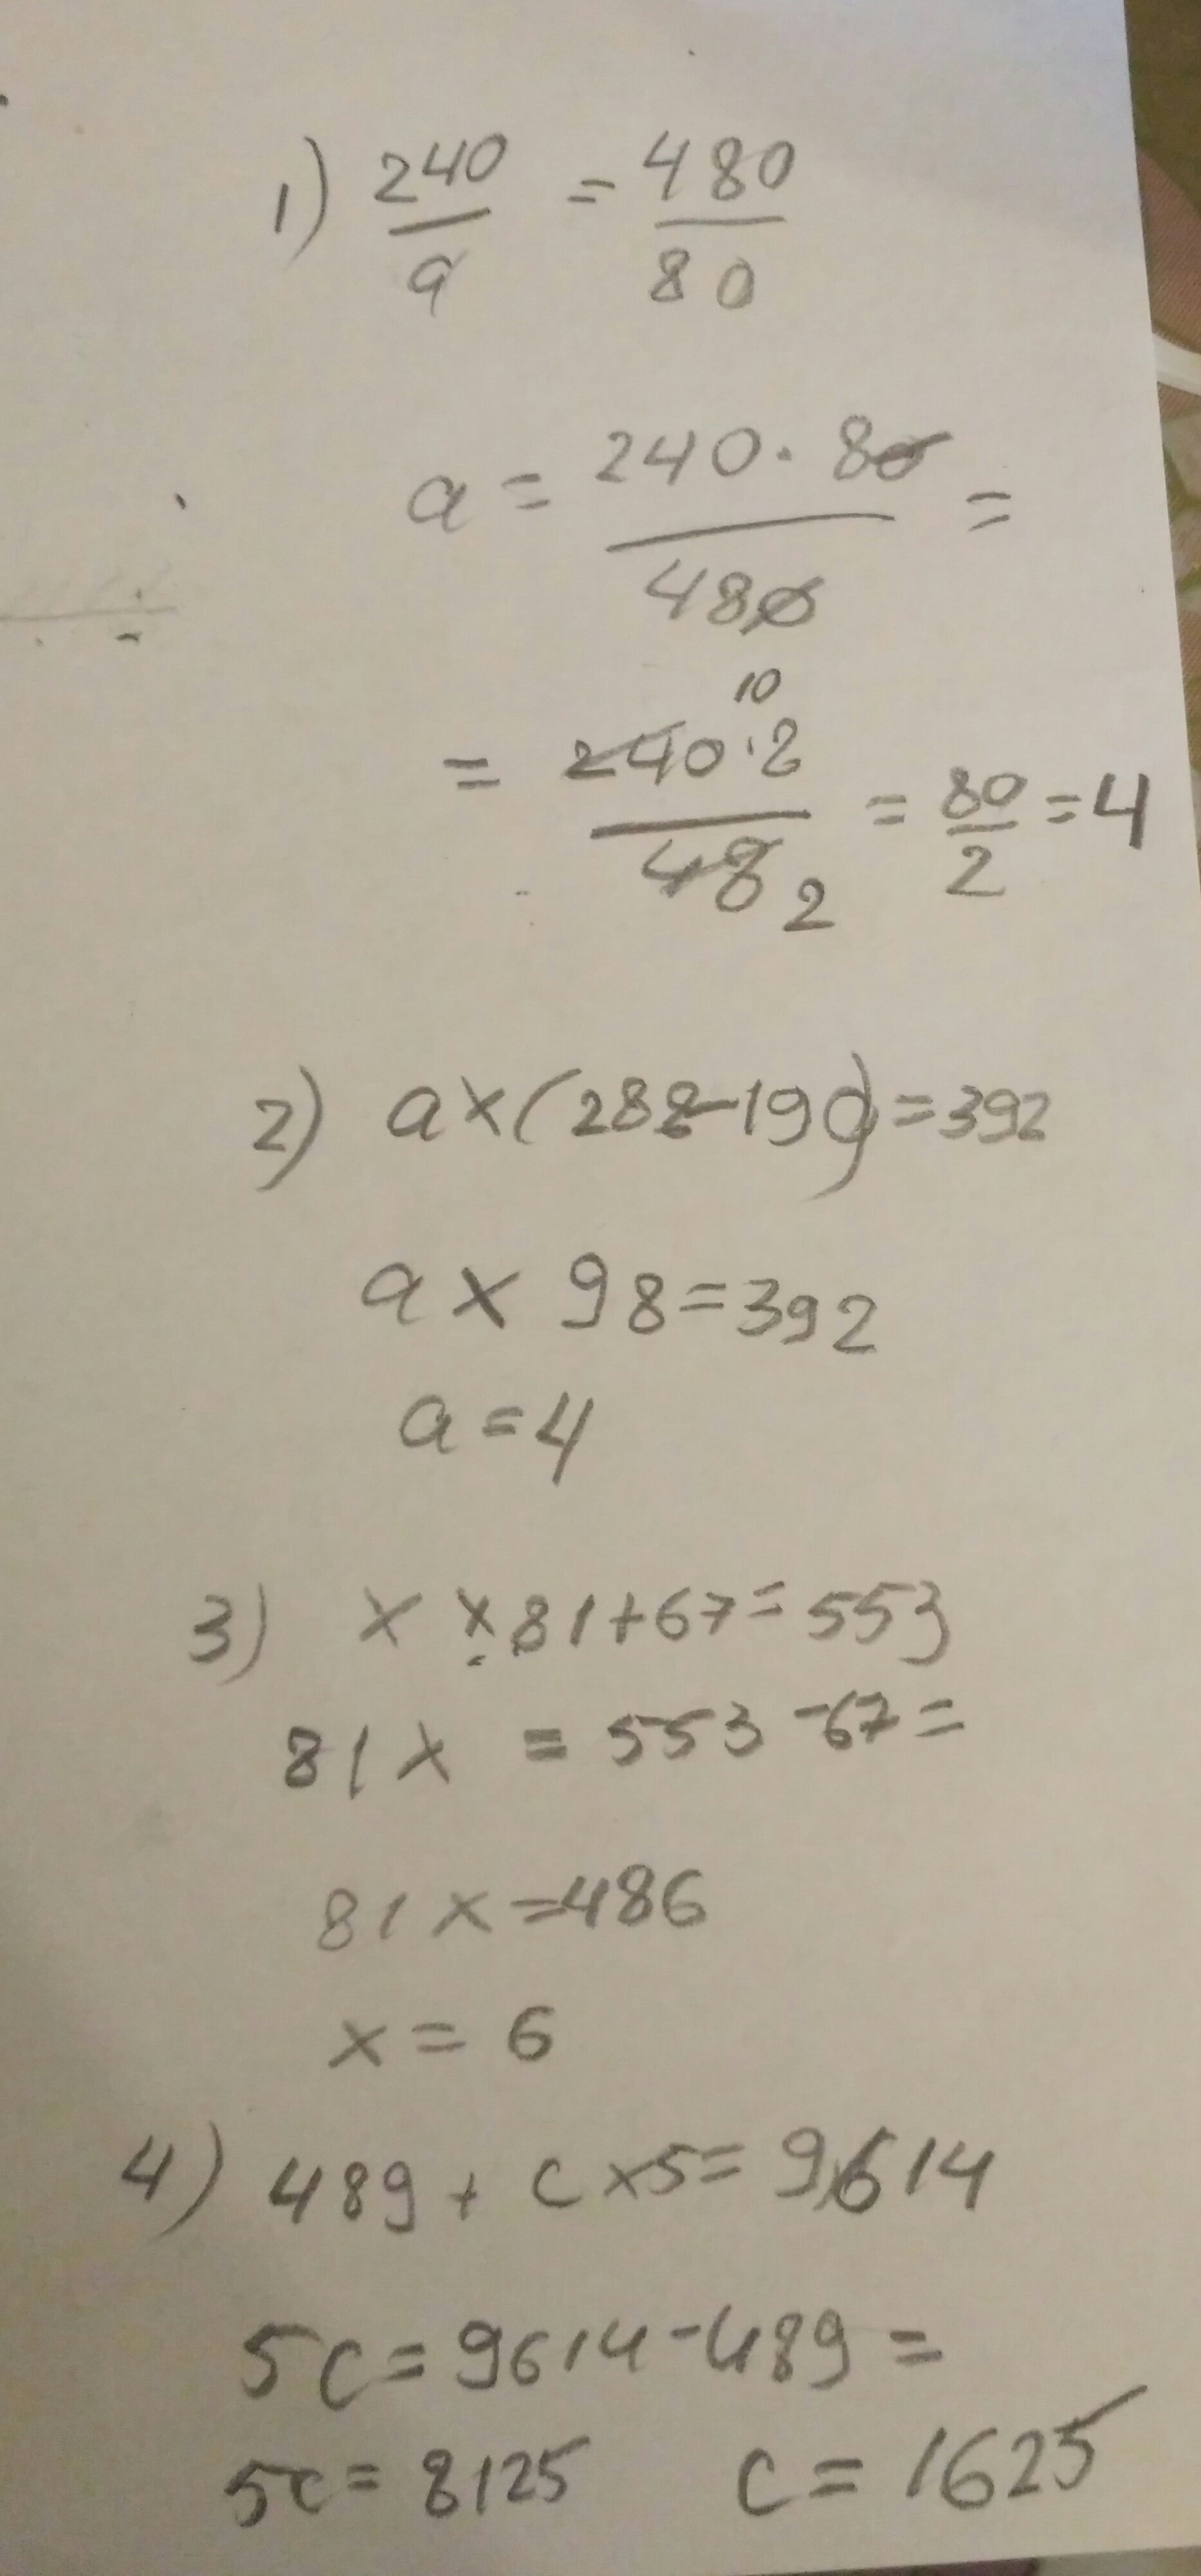 1) 240/a = 480/80
a = 240 · 80/480 =
10
= 240 · 8/48 2 = 80/2 = 4
2) a x (288-190) = 392
a x 98 = 392
a = 4
3) x x 81 + 67 = 553
81x = 553 - 67 =
81x = 486
x = 6
4) 489 + c x 5 = 9614
5c = 9614 - 489 =
5c = 8125 c = 1625